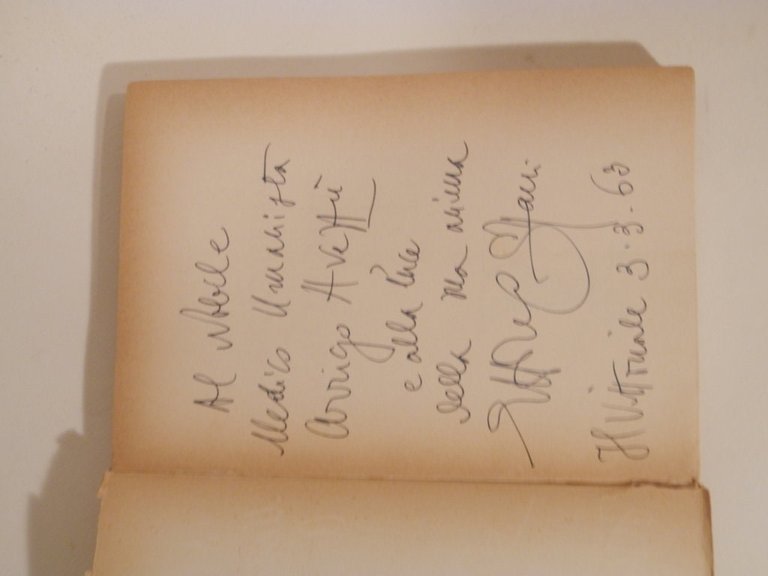 Al Nobile
Medico Umanista
Arrigo Avettù
e alla luce
della sua anima
Il Vittoriale 3.3.63